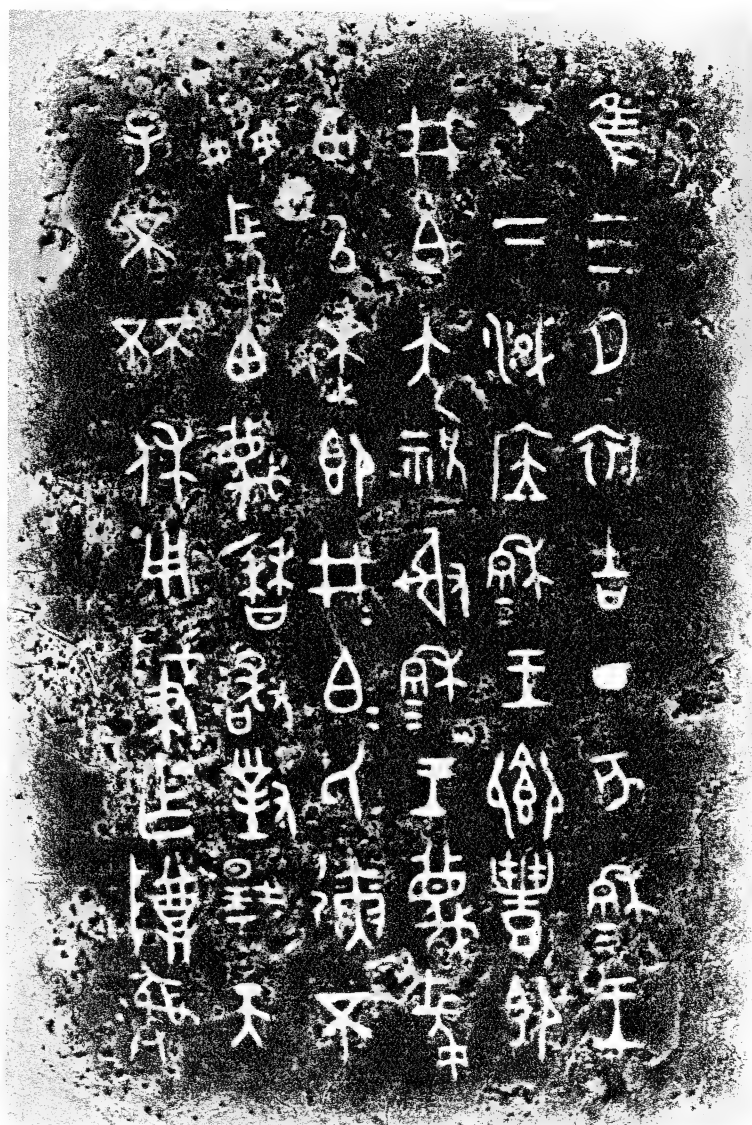 隹三月初吉丁亥穆王
才下淢㡴穆王鄉豊即
井白大祝射穆王蔑長
甶以逨即井=白=氏彌不
姦長甶蔑曆敢對揚天
子不杯休用肇乍尊彝